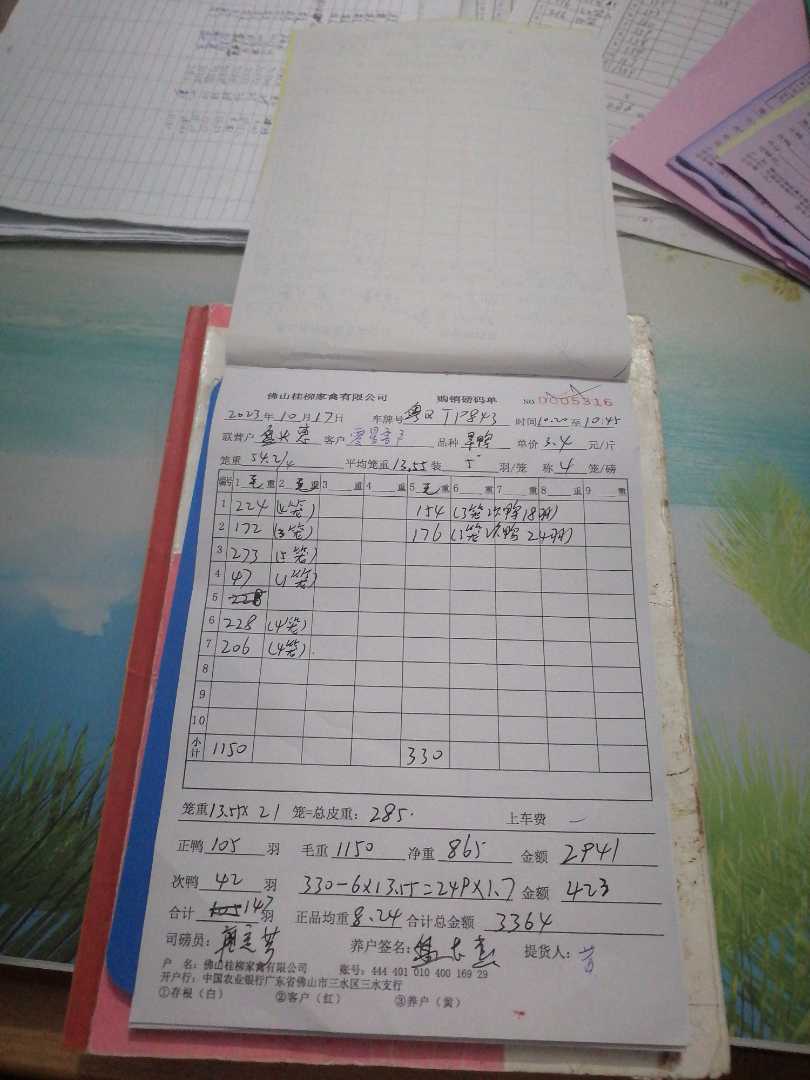 佛山桂柳家禽有限公司 购销磅码单 NO 0005316
2023年10月17日 车牌号 粤 TP843 时间10:20至10:45
联营户 客户 品种 单价 3.4 元/斤
笼重 54.2/4 平均笼重 13.55 装 5 羽/笼 称 4 笼/磅
编号 1 毛 重 2 毛 重 3 重 4 重 5 毛 重 6 重 7 重 8 重 9 重
1 224 (4笼) 154 (3笼次鸭18羽)
2 172 (3笼) 176 (3笼次鸭24羽)
3 273 (5笼)
4 47 (1笼)
5 228
6 228 (4笼)
7 206 (4笼)
8
9
10
小计 1150 330
笼重 13.55×21 笼=总皮重: 285. 上车费 —
正鸭 105 羽 毛重 1150 净重 865 金额 2941
次鸭 42 羽 330-6×13.55=249×1.7 金额 423
合计 105 147 羽 正品均重 8.24 合计总金额 3364
司磅员: 养户签名: 提货人: 芳
户 名: 佛山桂柳家禽有限公司 账号: 444 401 010 400 169 29
开户行: 中国农业银行广东省佛山市三水区三水支行
①存根(白) ②客户(红) ③养户(黄)